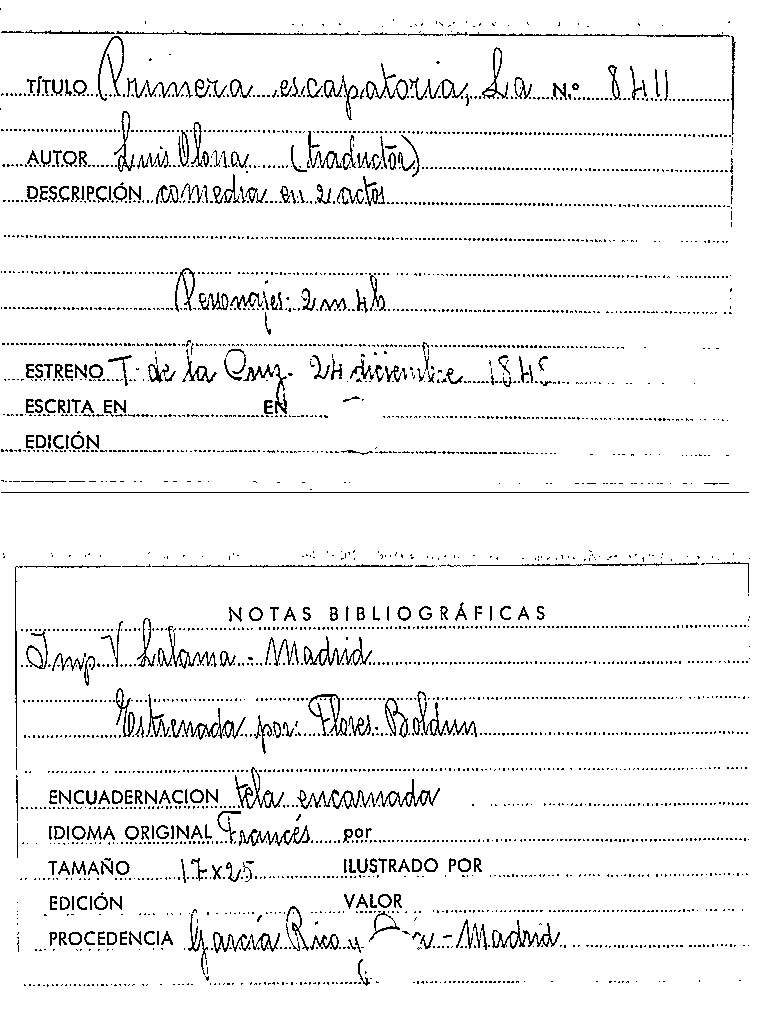 TÍTULO Primera escapatoria, La N.º 8411
AUTOR Luis Olona (traductor)
DESCRIPCIÓN comedia en 2 actos
Personajes: 2 m 4 h
ESTRENO T. de la Cruz. 24 diciembre 1845
ESCRITA EN EN —
EDICIÓN
NOTAS BIBLIOGRÁFICAS
Imp. V Lalama - Madrid
Estrenada por: Flores. Boldun
ENCUADERNACION tela encarnada
IDIOMA ORIGINAL Francés por
TAMAÑO 17x25 ILUSTRADO POR
EDICIÓN VALOR
PROCEDENCIA García Rico y - Madrid